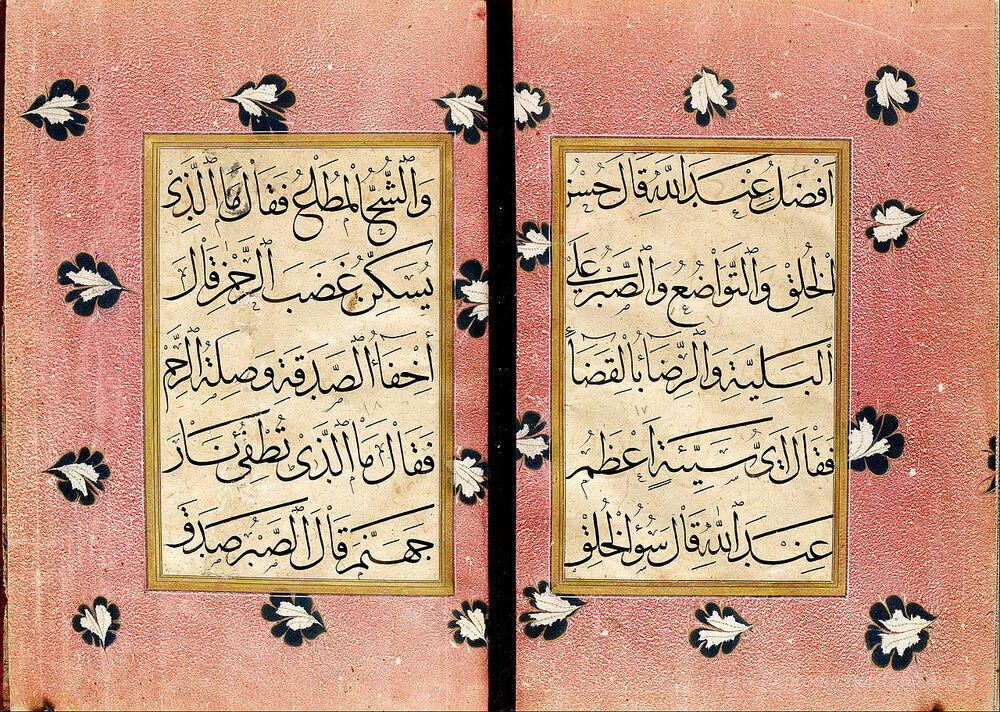 افضل عند الله قال حسن
الخلق والتواضع والصبر على
البلية والرضا بالقضا
فقال اي سيئة اعظم
عند الله قال سؤ الخلق
والشح المطلع فقال ما الذي
يسكن غضب الرحمن قال
أخفا الصدقة وصلة الرحم
فقال ما الذي تطفئ نار
جهنم قال الصبر صدق